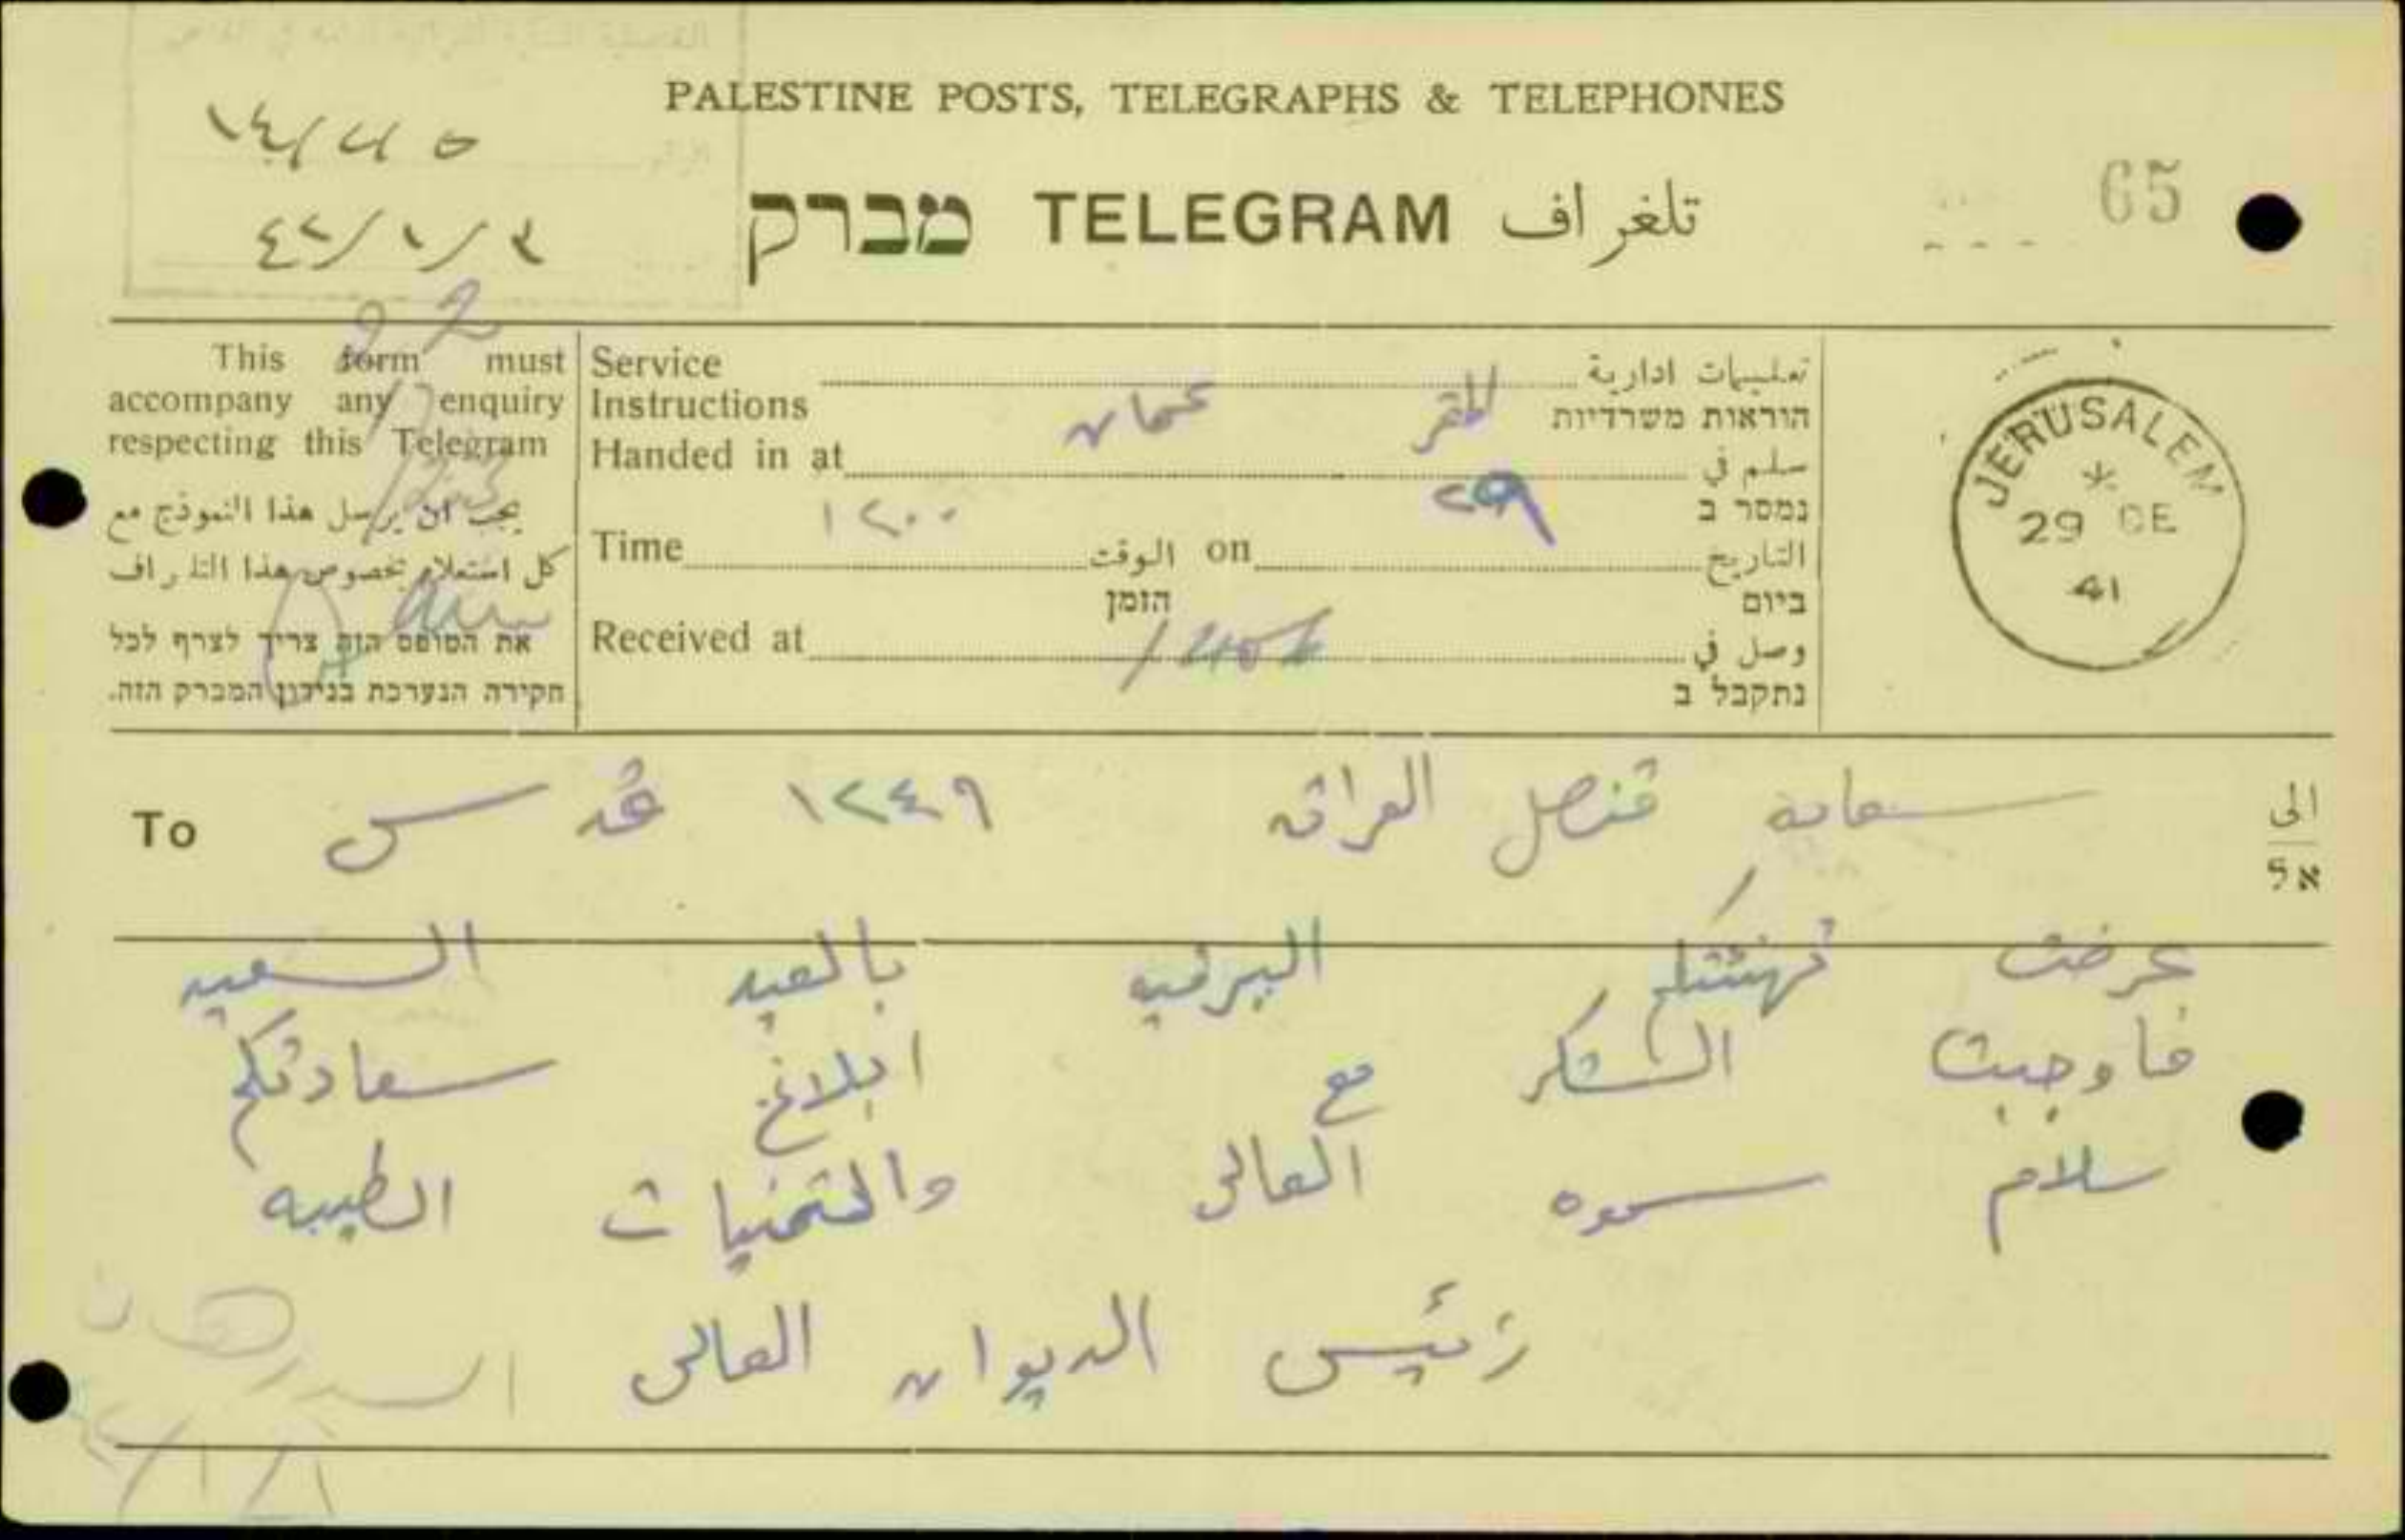 PALESTINE POSTS, TELEGRAPHS & TELEPHONES
١٤/٢/٥
٤٢/١/٢
65
מברק TELEGRAM تلغراف
This form must accompany any enquiry respecting this Telegram
يجب ان يرسل هذا النموذج مع
كل استعلام بخصوص هذا التلغراف
את הטופס הזה צריך לצרף לכל
חקירה הנערכת בנידון המברק הזה.
Service Instructions تعليمات ادارية
הוראות משרדיות
المقر عمان
Handed in at سلم في
נמסר ב
٢٩
١٢٠٠
Time الوقت on التاريخ
הזמן ביום
Received at وصل في
נתקבל ב
JERUSALEM
29 DE
41
To الى
אל
سعادة قنصل العراق ١٢٤٩ قدس
عرضت تهنئتكم البرقيه بالعيد السعيد
فاوجبت الشكر مع ابلاغ سعادتكم
سلام سموه العالي والتمنيات الطيبه
رئيس الديوان العالي